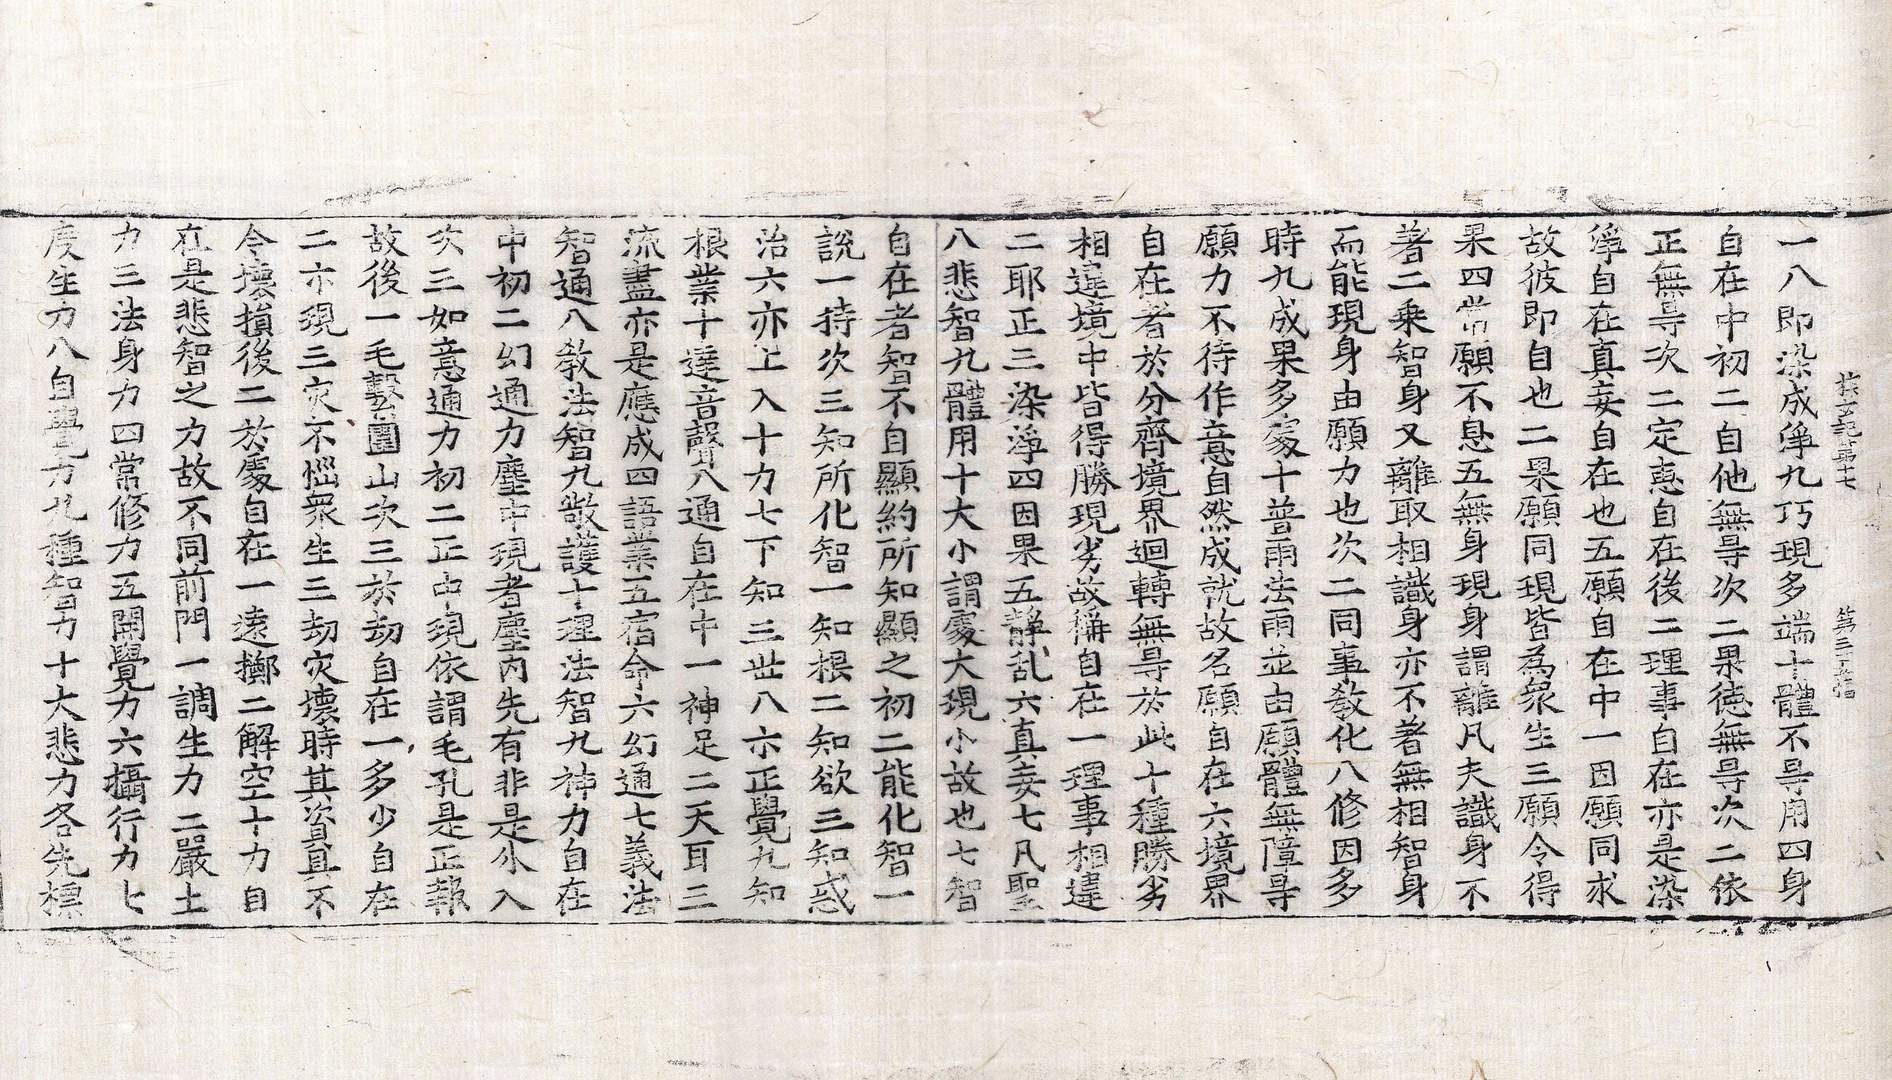 探玄記第十七 第三十五幅
一八即染成淨九巧現多端十體不㝵用四身
自在中初二自他無㝵次二果徳無㝵次二依
正無㝵次二定恵自在後二理事自在亦是染
淨自在真妄自在也五願自在中一因願同求
故彼即自也二果願同現皆為衆生三願令得
果四常願不息五無身現身謂離凡夫識身不
著二乘智身又離取相識身亦不著無相智身
而能現身由願力也次二同事教化八修因多
時九成果多䖏十普雨法雨並由願體無障㝵
願力不待作意自然成就故名願自在六境界
自在者於分齊境界迴轉無㝵於此十種勝劣
相違境中皆得勝現劣故稱自在一理事相違
二耶正三染淨四因果五静乱六真妄七凡聖
八悲智九體用十大小謂䖏大現小故也七智
自在者智不自顯約所知顯之初二能化智一
說一持次三知所化智一知根二知欲三知惑
治六亦上入十力七下知三世八亦正覺九知
根業十達音聲八通自在中一神足二天耳三
流盡亦是應成四語業五宿命六幻通七義法
智通八教法智九㪚護十理法智九神力自在
中初二幻通力塵中現者塵内先有非是外入
次三如意通力初二正中現依謂毛孔是正報
故後一毛繫圍山次三於劫自在一多少自在
二亦現三灾不惱衆生三劫灾壞時其資具不
令壞損後二於䖏自在一遠擲二解空十力自
在是悲智之力故不同前門一調生力二嚴土
力三法身力四常修力五開覺力六攝行力七
度生力八自覺力九種智力十大悲力各先標